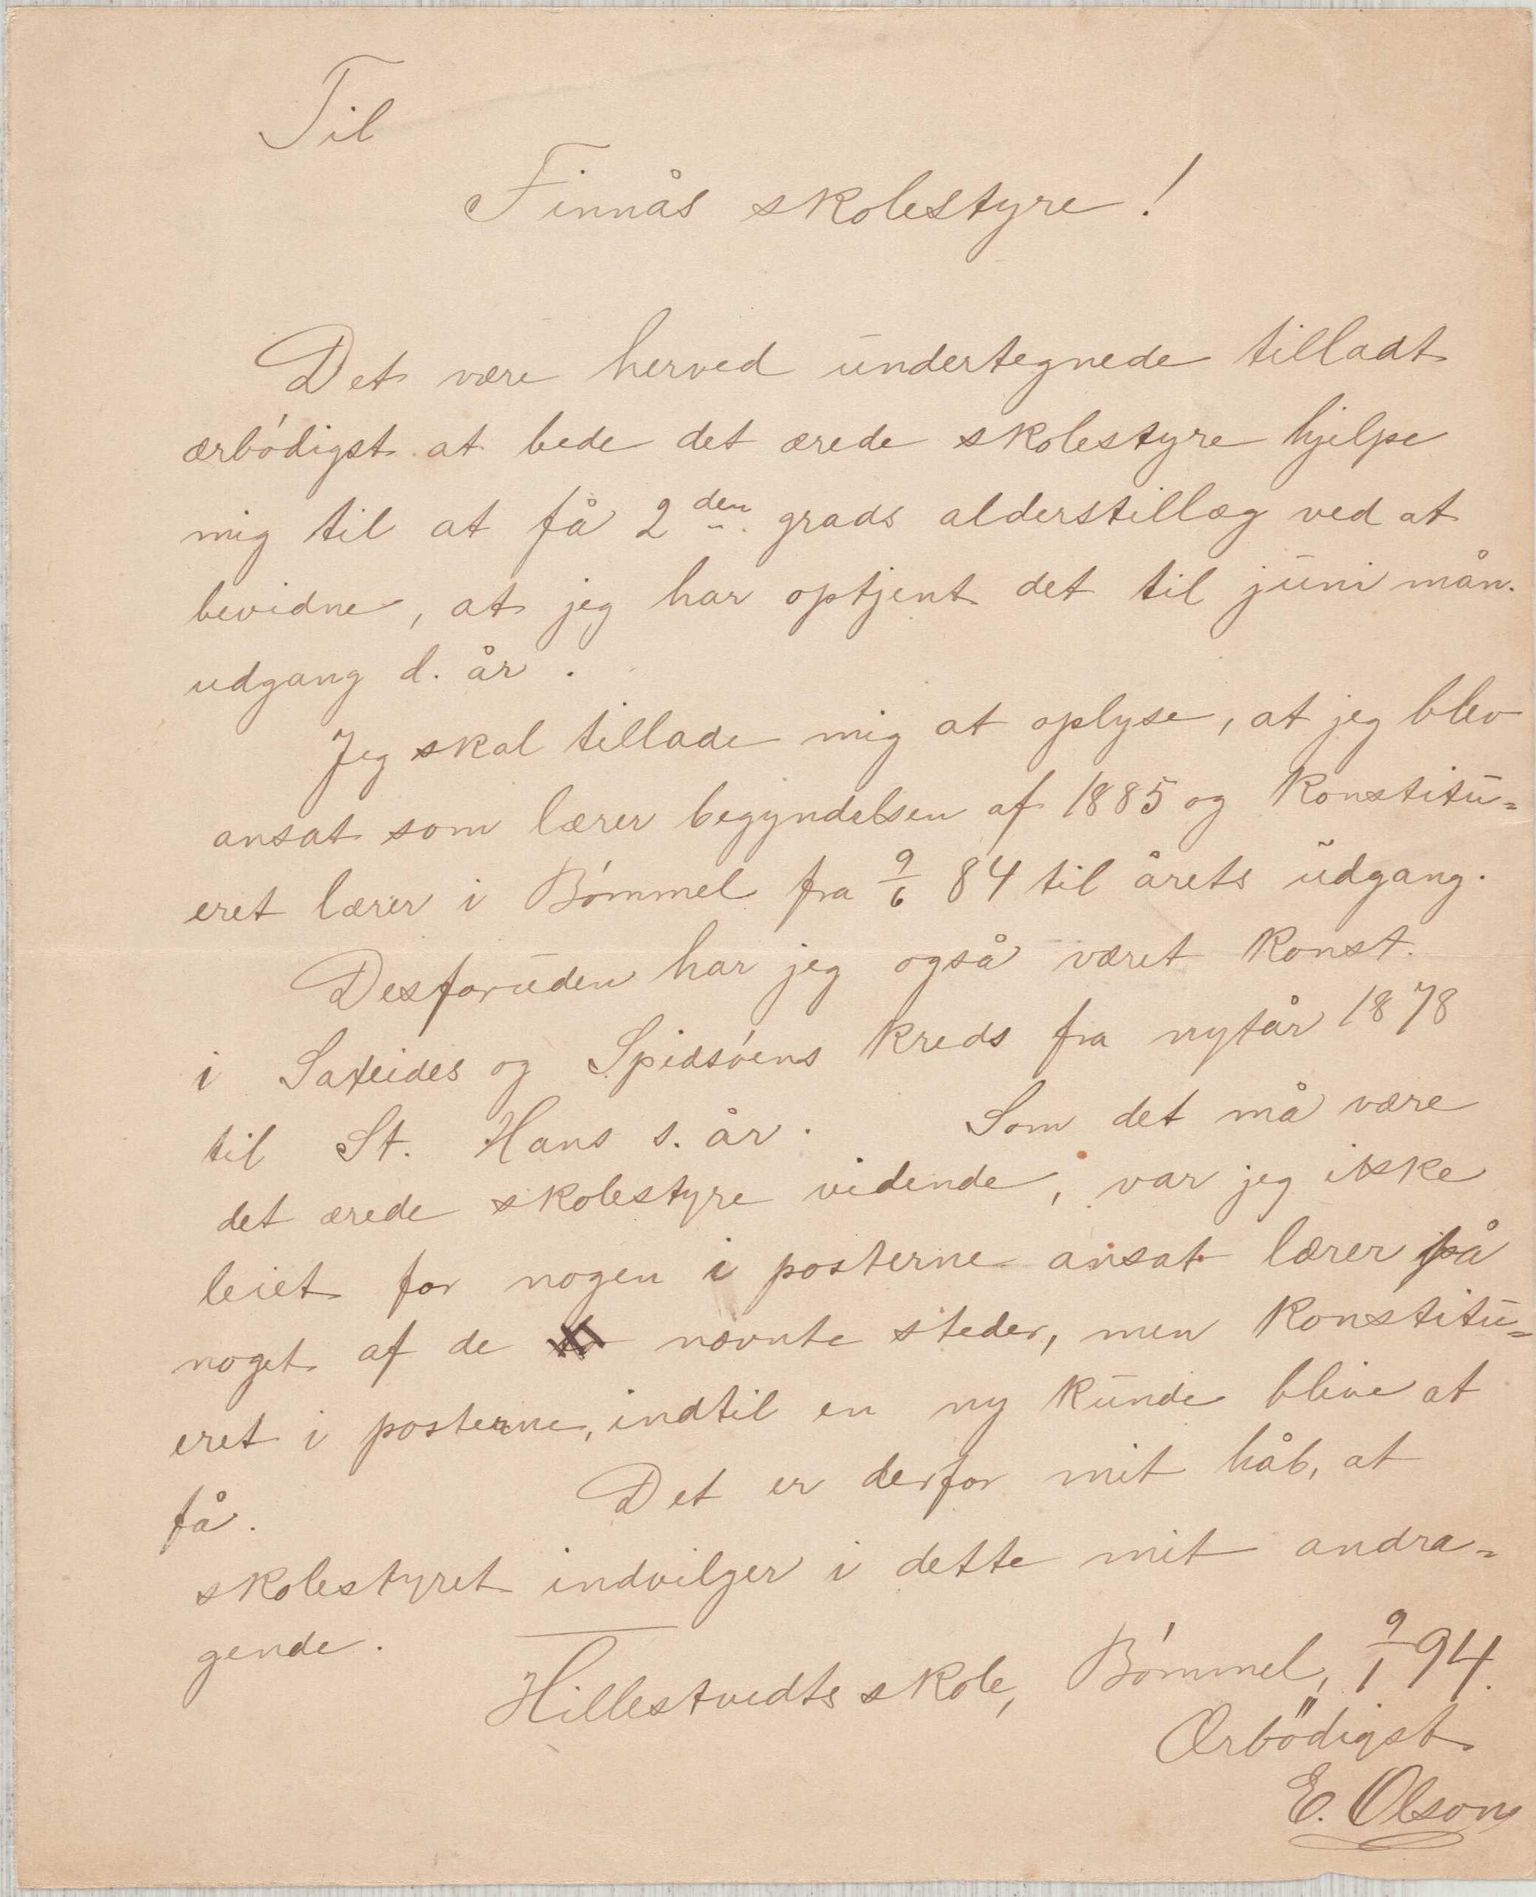 Til
Finnås skolestyre!
Det være herved undertegnede tilladt
ærbódigst at bede det ærede skolestyre hjelpe
mig til at få 2den grads alderstillæg ved at
bevidne, at jeg har optjent det til juni mån.
udgang d. år.
Jeg skal tillade mig at oplyse, at jeg blev
ansat som lærer begyndelsen af 1885 og konstitu=
eret lærer i Bómmel fra 9/6 84 til årets udgang.
Desforuden har jeg også været konst.
i Sateides og Spidsóens kreds fra nytår 1878
til St. Hans s. år. Som det må være
det ærede skolestyre vidende, var jeg ikke
leiet for nogen i posterne ansat lærer på
noget af de nævnte steder, men konstitu=
eret i posterne, indtil en ny kunde blive at
få. Det er derfor mit håb, at
skolestyret indvilger i dette mit andra=
gende.
Hillestvedts skole, Bómmel, 9/1 94.
Ærbödigst
E. Olson